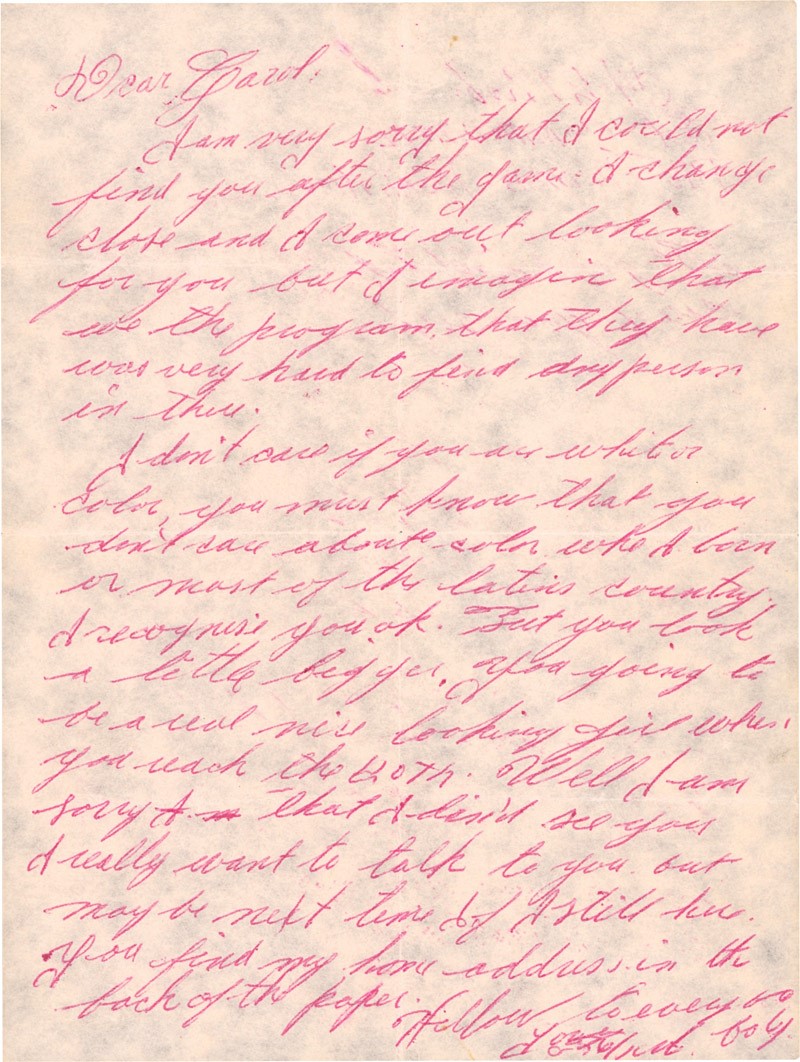 Dear Carol,
I am very sorry that I could not
find you after the game. I change
close and I come out looking
for you but I imagin that
we the program, that they have
was very hard to find any person
in there.
I don't care if you are white or
color, you must know that you
don't care about color whe I born
or most of the latins country.
I recognise you ok. But you look
a little bigger. You going to
be a real nice looking girl when
you reach the 20th. Well I am
sorry that I dind see you
I really want to talk to you. but
may be next time If I still here.
You find my home address in the
back of the paper.
Hillow to everybody